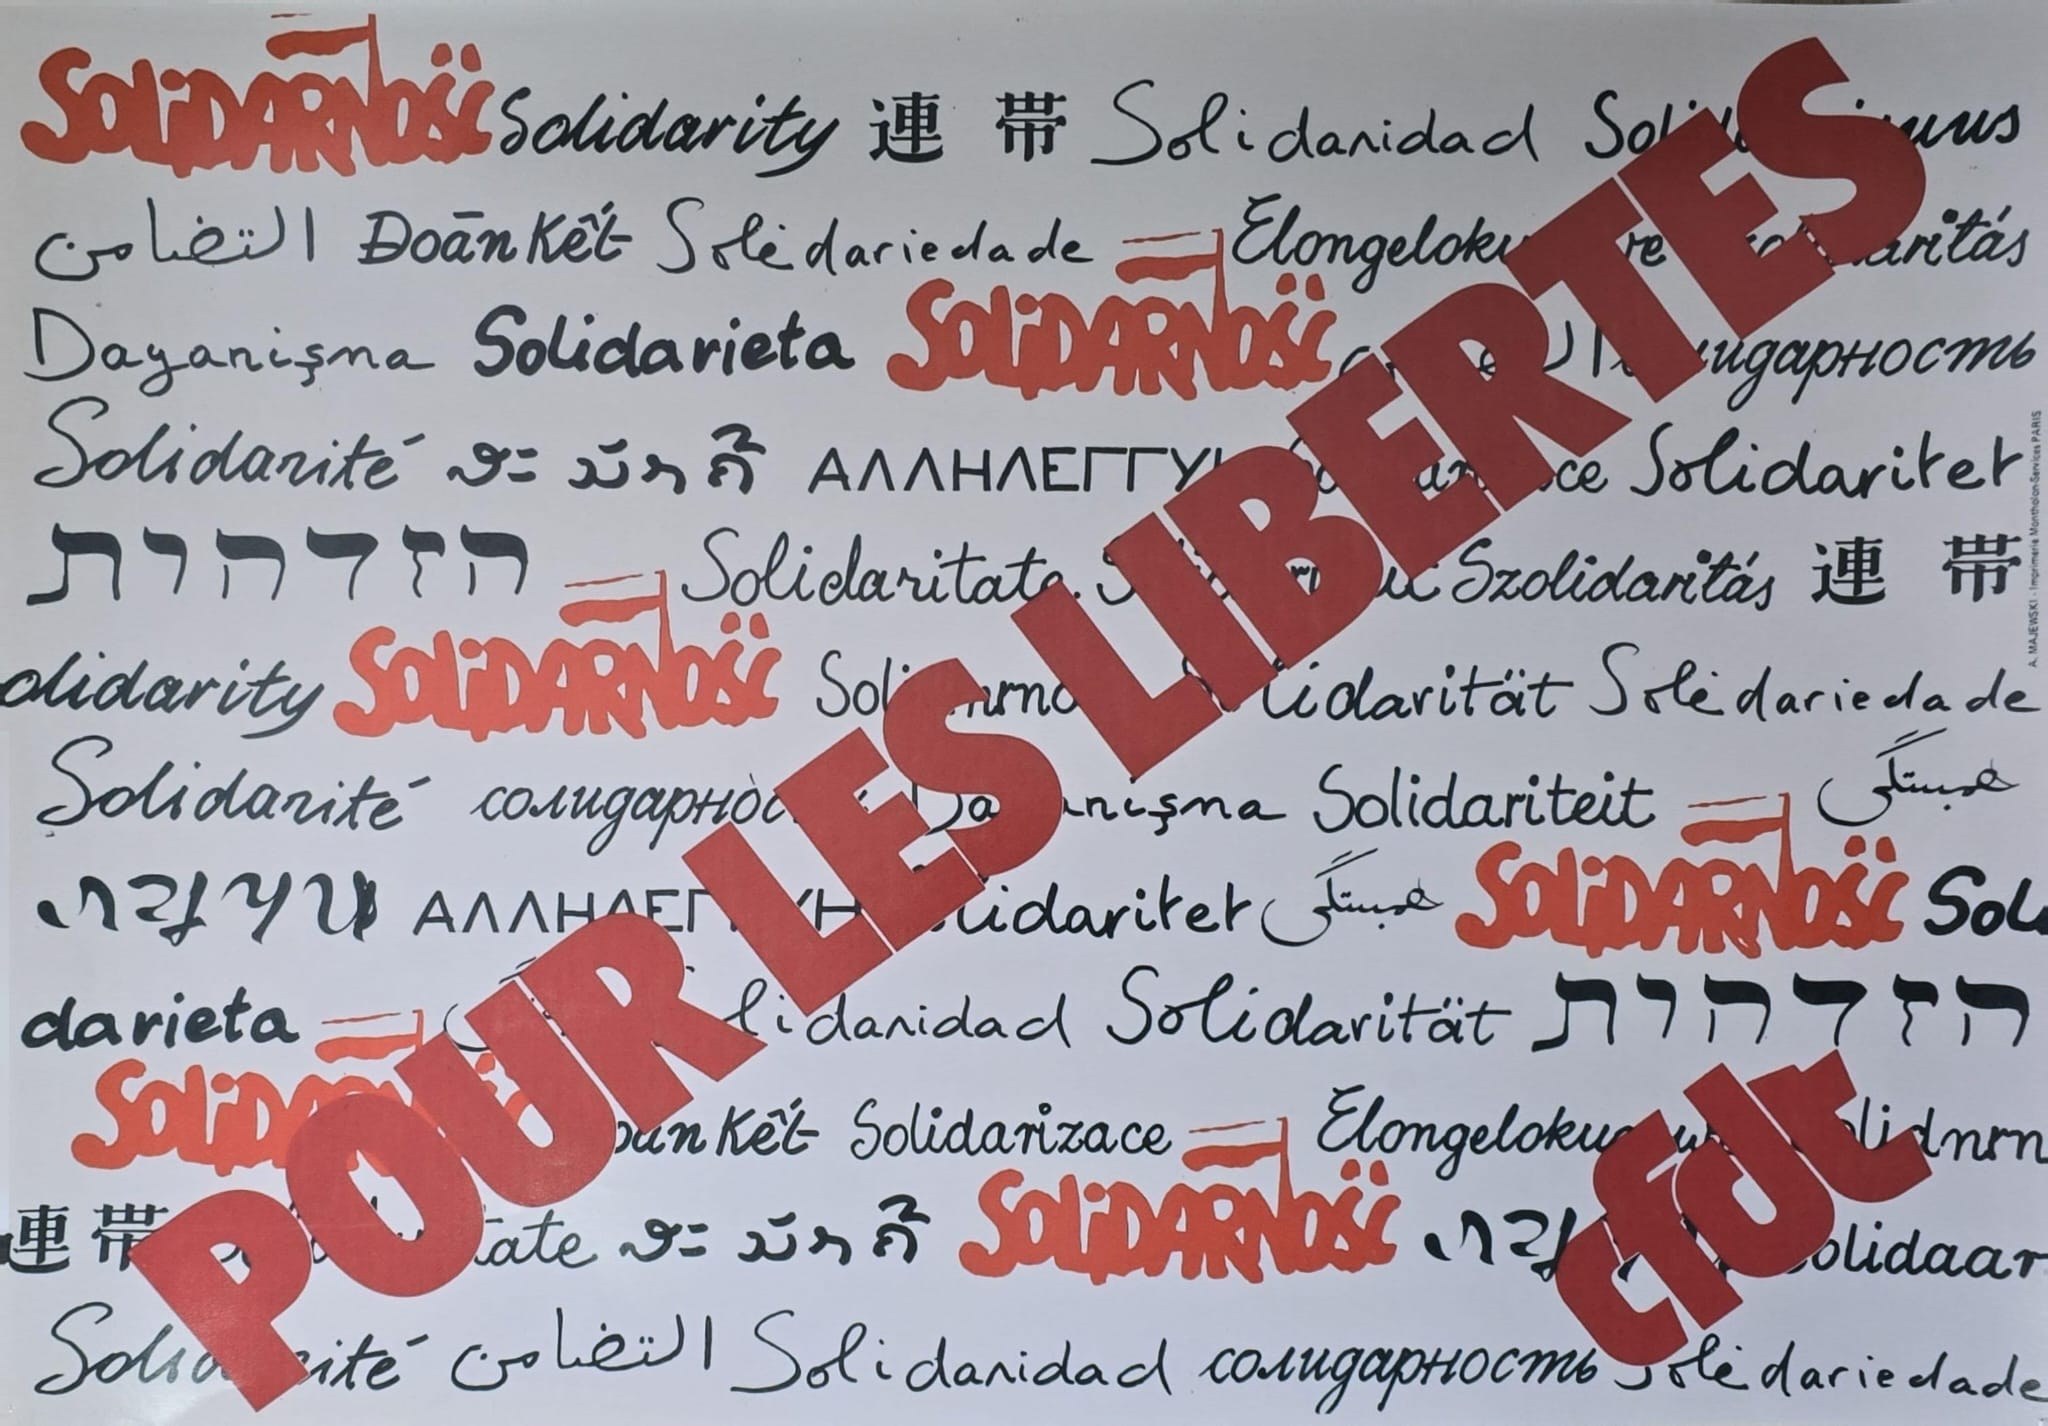 SOLIDARNOŚĆ Solidarity 連 帯 Solidaridad
التضامن Đoàn Kết Solidariedade solidaritás
Dayanişma Solidarieta SOLIDARNOŚĆ солидарность
Solidarité ΑΛΛΗΛΕΓΓΥΗ Solidaritet
הזדהות Solidaritate Szolidaritás 連 帯
olidarity SOLIDARNOŚĆ Solidarität Solidariedade
Solidarité солидарность Dayanişma Solidariteit همبستگی
ΑΛΛΗΛΕΓΓΥΗ Solidaritet همبستگی SOLIDARNOŚĆ Soli
darieta Solidaridad Solidarität הזדהות
SOLIDARNOŚĆ Đoàn Kết Solidarizace Elongelokus
連 帯 SOLIDARNOŚĆ
Solidarité التضامن Solidaridad солидарность Solidariedade
POUR LES LIBERTES
cfdt
A. MAJEWSKI - Imprimerie Montholon-Services PARIS